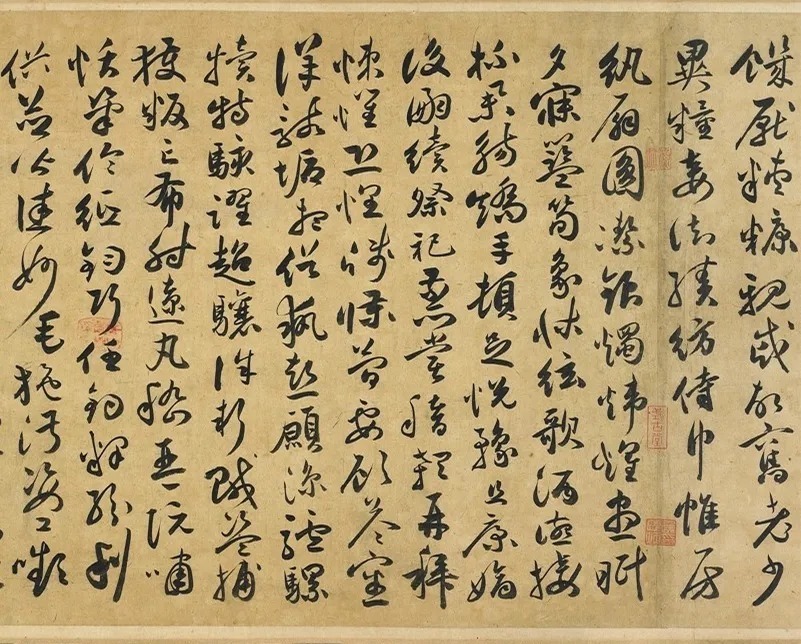 饑厭糟糠親戚故舊老少
異糧妾御績紡侍巾帷房
紈扇圓潔銀燭煒煌晝眠
夕寐籃筍象床絃歌酒讌接
杯舉觴矯手頓足悅豫且康嫡
後嗣續祭祀蒸嘗稽顙再拜
悚懼恐惶牋牒簡要顧答審
詳骸垢想浴執熱願涼驢騾
犢特駭躍超驤誅斬賊盜捕
獲叛亡布射遼丸嵇琴阮嘯
恬筆倫紙鈞巧任釣釋紛利
俗並皆佳妙毛施淑姿工顰